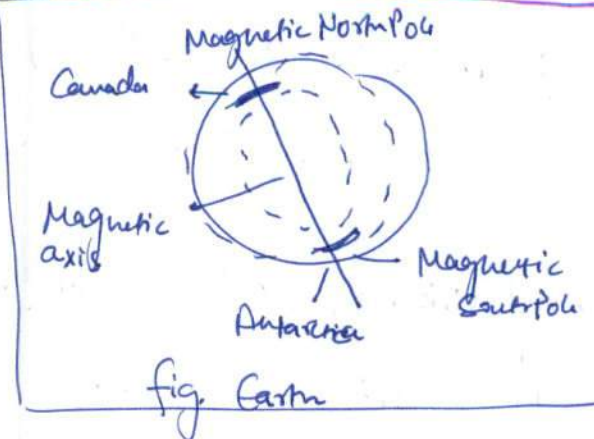 Magnetic North Pole
Canada
Magnetic
axis
Magnetic
South Pole
Antartica
fig. Earth